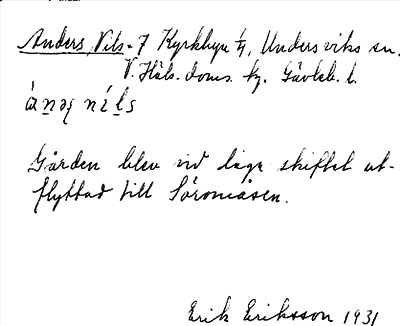 Anders, Nils - 7 Kyrkbyn 4, Undersviks sn.
V. Häls. doms. hg. Gävleb. l.
ánəʂ níls
Gården blev vid laga skiftet ut-
flyttad till Söromåsen.
Erik Eriksson 1931